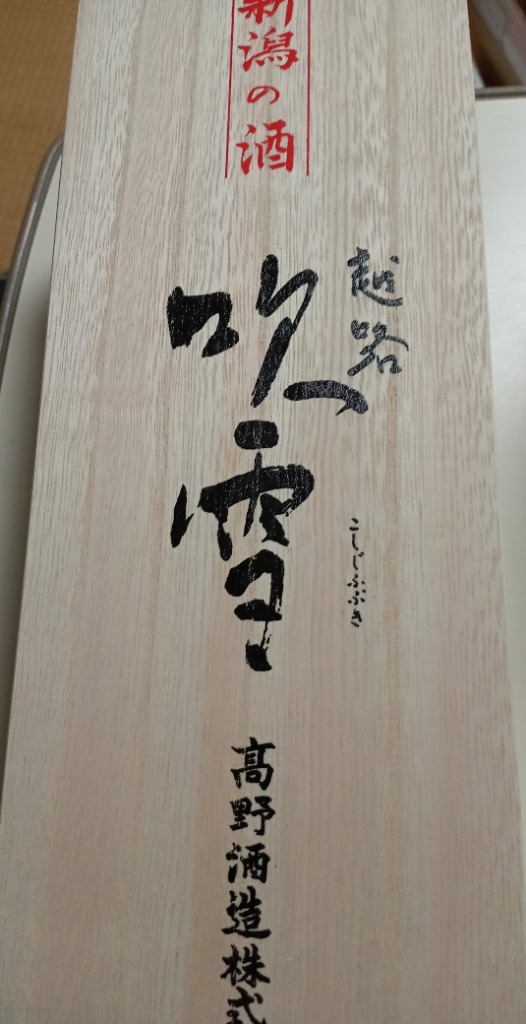 新潟の酒
越路
吹雪
こしじふぶき
高野酒造株式